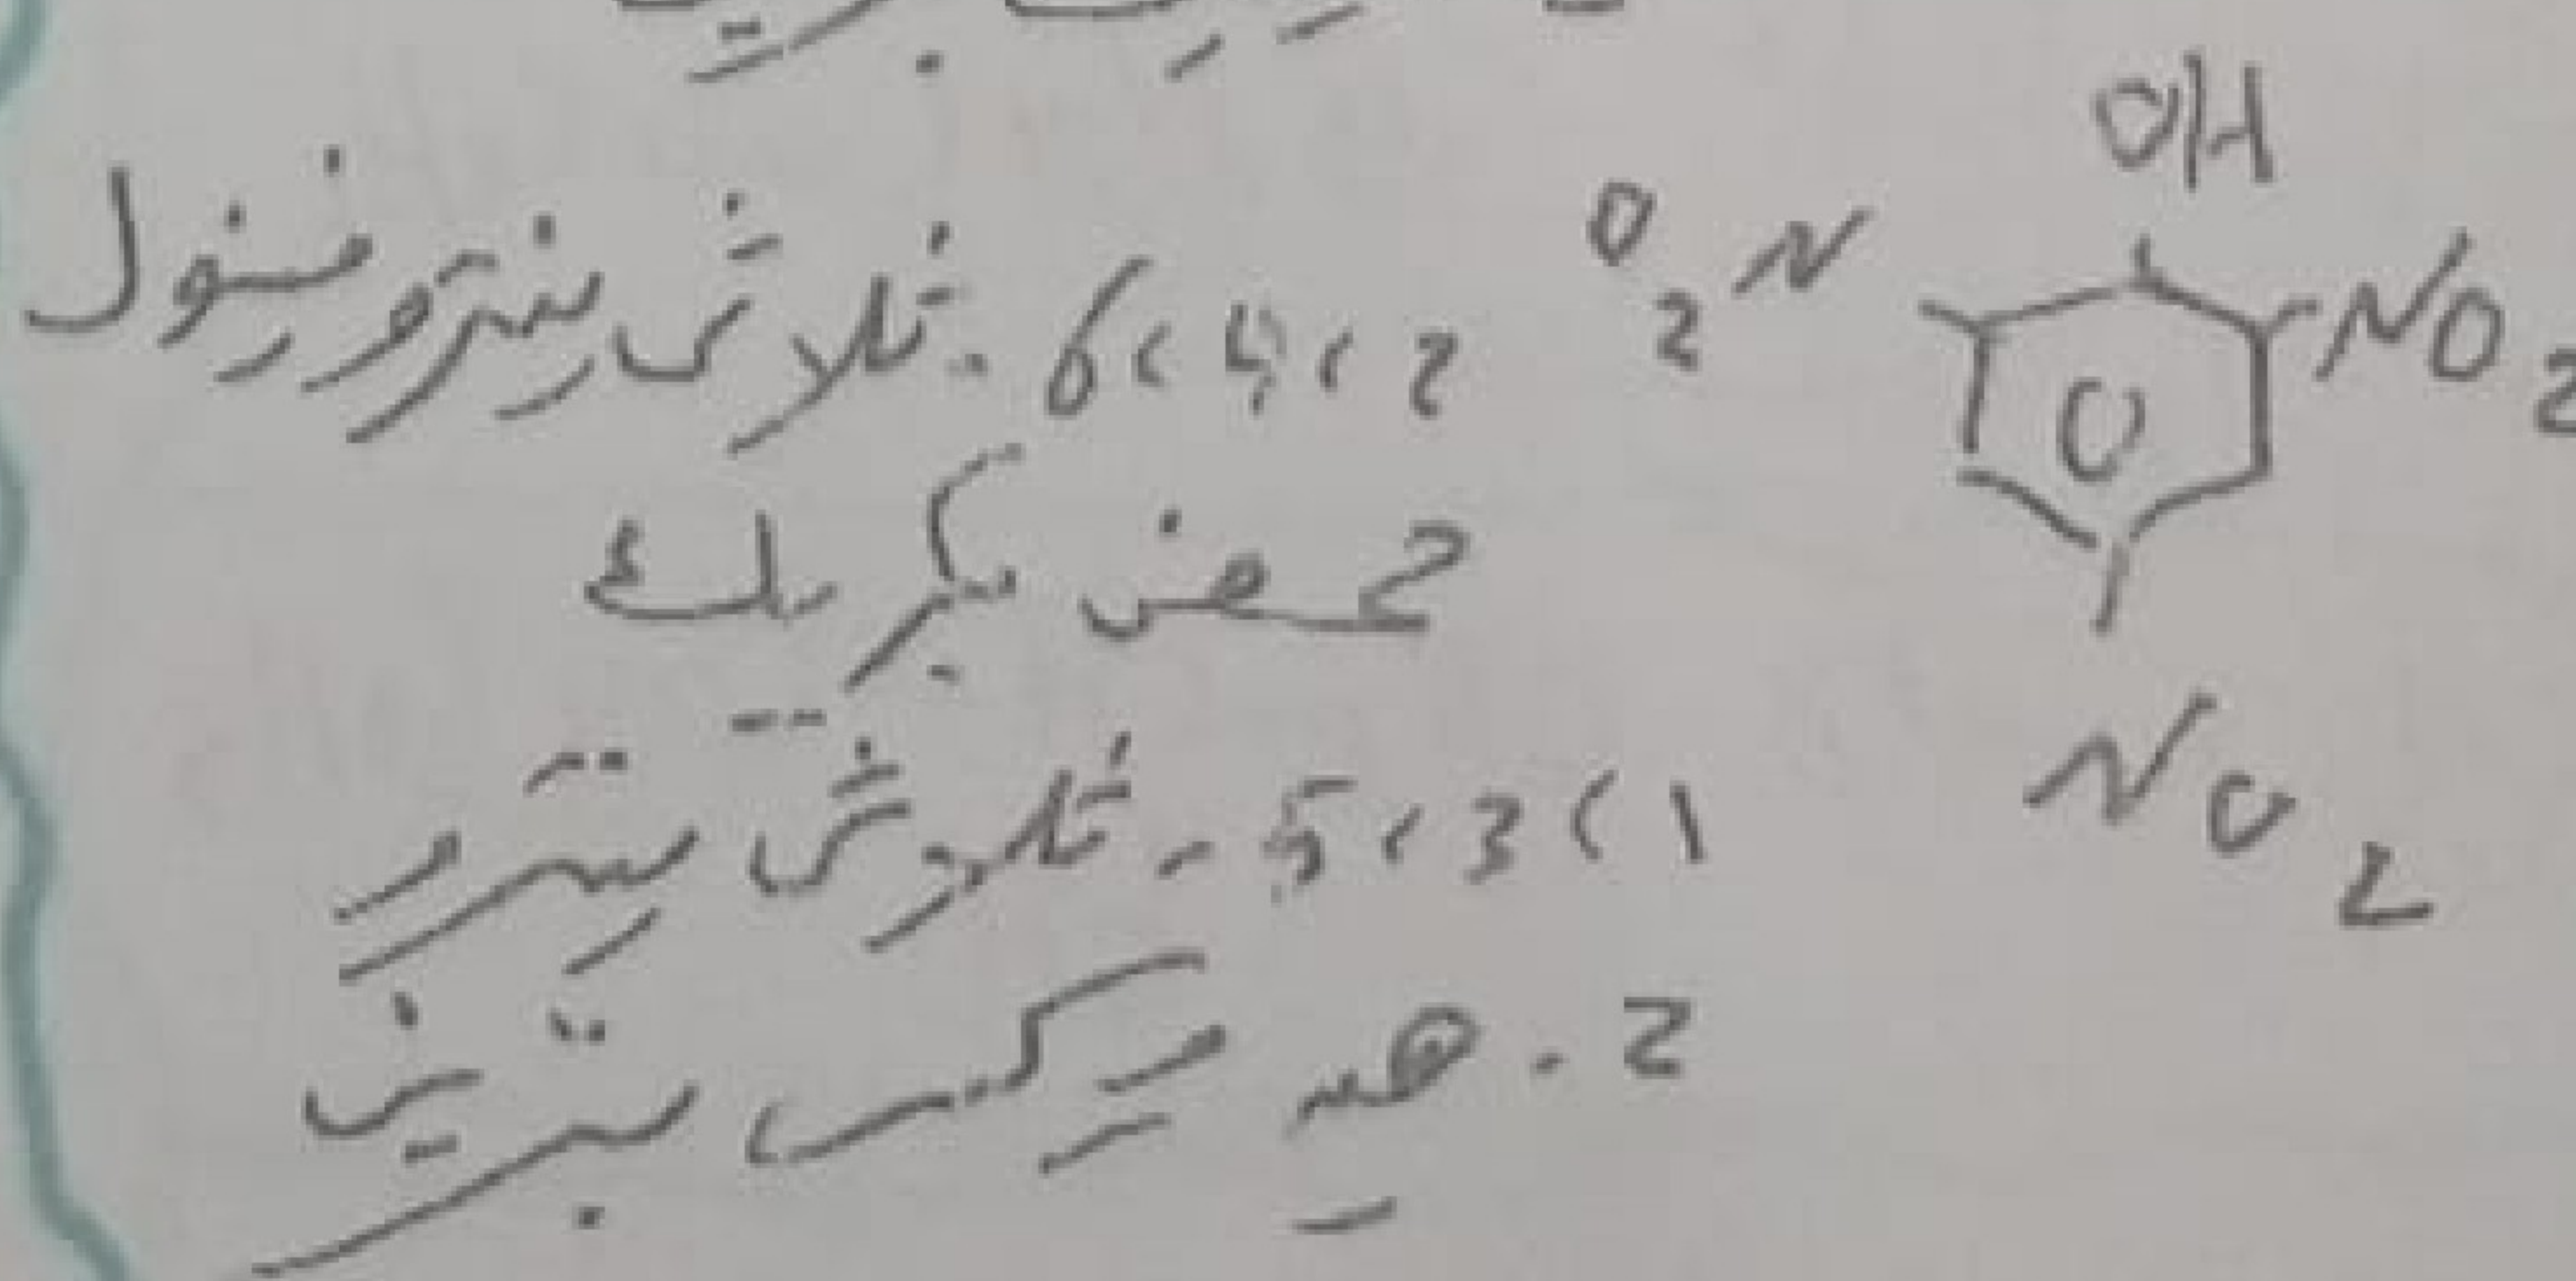 OH
O2N
NO2
NO2
2،4،6 - ثلاثى نيتروفينول
حمض بكريك
1،3،5 - ثلاثى نيترو
2 - هيدروكسى بنزين